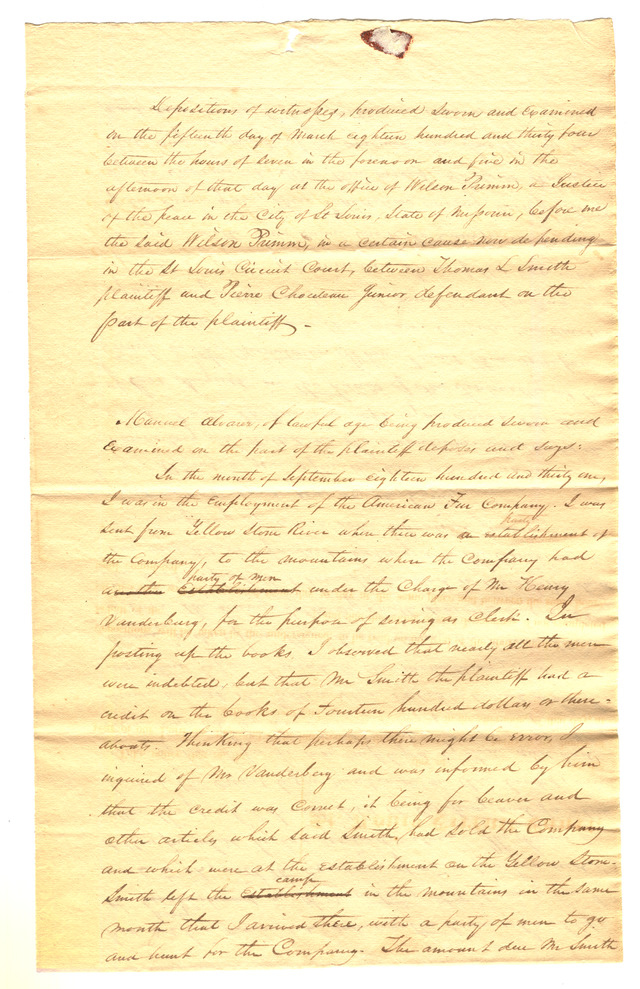 Depositions of witnesses, produced sworn and examined
on the fifteenth day of March eighteen hundred and thirty four
between the hours of seven in the forenoon and five in the
afternoon of that day at the office of Wilson Primm, a Justice
of the peace in the City of St Louis, State of Missouri, before me
the said Wilson Primm, in a certain cause now depending
in the St Louis Circuit Court, between Thomas L Smith
plaintiff and Pierre Chouteau Junior, defendant on the
part of the plaintiff -
Manuel Alvarez, of lawful age being produced sworn and
Examined on the part of the plaintiff deposes and says:
In the month of September eighteen hundred and thirty one,
I was in the Employment of the American Fur Company. I was
sent from Yellow Stone River where there was a establishment of
the Company, to the mountains where the Company had
party of men
another Establishment under the Charge of Mr Henry
Vanderburg, for the purpose of serving as Clerk. In
posting up the books I observed that nearly all the men
were indebted, but that Mr Smith the plaintiff had a
credit on the books of Fourteen hundred dollars or there-
abouts. Thinking that perhaps there might be error, I
inquired of Mr Vanderberg and was informed by him
that the credit was correct, it being for beaver and
other articles which said Smith, had sold the Company
and which were at the establishment on the Yellow Stone-
camp
Smith left the Establishment in the mountains in the same
month that I arrived there, with a party of men to go
and hunt for the Company. The amount due Mr Smith